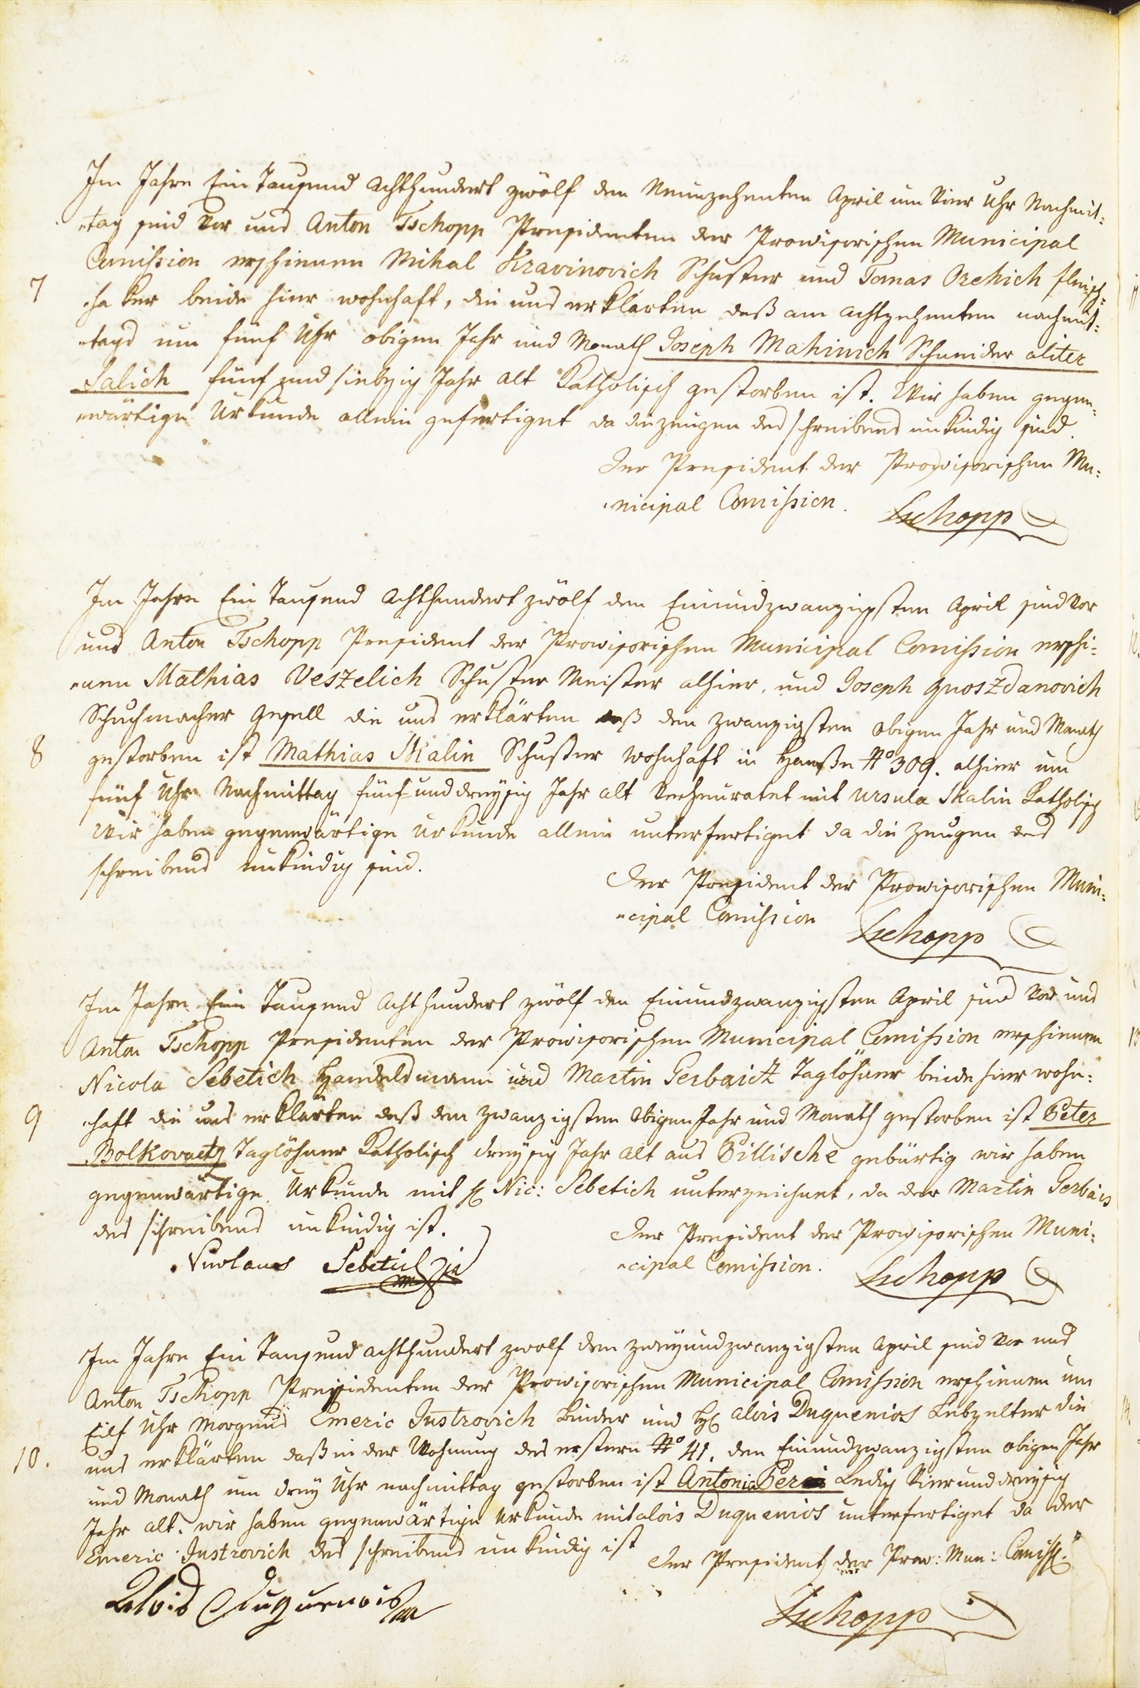 Im Jahre Ein Tausend Achthundert zwölf den Neunzehenten April um Vier Uhr Nachmit-
tag sind vor uns Anton Tschopp Presidenten der Prowisorischen Municipal
Comission erschienen Mihal Kravinovich Schuster und Tomas Orehich fleisch-
7
haker beide hier wohnhaft, die uns erklärten daß am achtzehenten nachmit-
tags um fünf Uhr obigen Jahr und Monath Joseph Mahinich Schneider aliter
Salich fünf und siebzig Jahr alt Katholisch gestorben ist. Wir haben gegen-
wärtige Urkunde allein gefertiget da die zeugen des schreibens unkündig sind.
Der President der Prowisorischen Mu-
nicipal Comission. Tschopp
Im Jahre Ein Tausend Achthundert zwölf den Einundzwanzigsten April sind vor
uns Anton Tschopp President der Prowisorischen Municipal Comission erschi-
enen Mathias Veszelich Schuster Meister alhier, und Joseph Gnoszdanovich
Schuchmacher Gesell die uns erklärten daß den zwanzigsten obigen Jahr und Monath
8
gestorben ist Mathias Skalin Schuster wohnhaft in Hauße No 309. alhier um
fünf Uhr Nachmittag fünf und dreysig Jahr alt Verheuratet mit Ursula Skalin Katholisch
Wir haben gegenwärtige Urkunde allein unterfertiget da die Zeugen des
schreibens unkündig sind.
Der President der Prowisorischen Muni-
cipal Comission Tschopp
Im Jahre Ein Tausend Achthundert zwölf den Einundzwanzigsten April sind vor uns
Anton Tschopp Presidenten der Prowisorischen Municipal Comission erschienen
Nicola Sebetich Handelsmann und Martin Gerbaictz Taglöhner beide hier wohn-
9
haft die uns erklärten daß den zwanzigsten obigen Jahr und Monath gestorben ist Peter
Bolkovactz Taglöhner Katholisch dreysig Jahr alt aus Billische gebürtig wir haben
gegenwärtige Urkunde mit H Nic: Sebetich unterzeichnet, da der Martin Gerbais
des schreibens unkündig ist.
Der President der Prowisorischen Muni-
Nicolaus Sebetich
cipal Comission. Tschopp
Im Jahre Ein Tausend achthundert zwölf den zweyundzwanzigsten April sind vor uns
Anton Tschopp Presidenten der Prowisorischen Municipal Comission erschienen um
Eilf Uhr Morgens Emeric Justrovich Binder und H Alois Duquenios Lebzelter die
10.
uns erklärten daß in der Wohnung des erstern No 41. den Einundzwanzigsten obigen Jahr
und Monath um drey Uhr nachmittag gestorben ist Antonia Ledig Vierunddreysig
Jahr alt. wir haben gegenwärtige Urkunde mit alois Duquenios unterfertiget da der
Emeric Justrovich des schreibens unkündig ist
Der President der Prow: Mun: Comiss:
Alois Duquenois
Tschopp